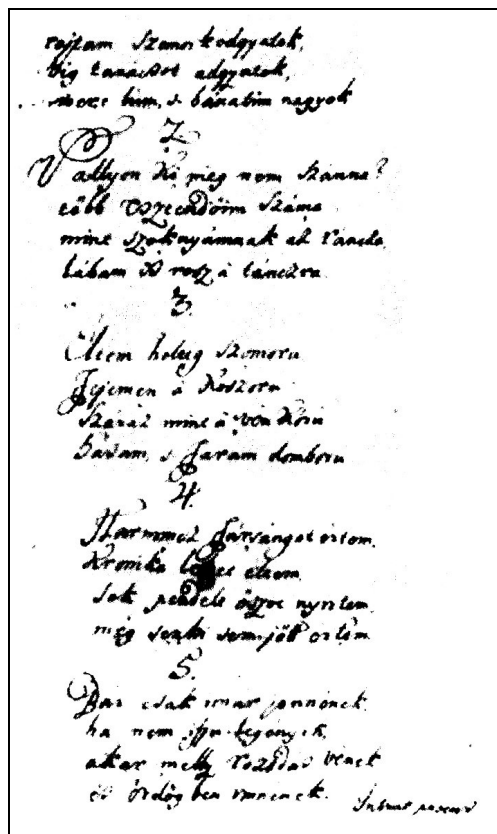 rajtam szanakodgyatok,
vig tanácsot adgyatok,
mert búm, s bánatim nagyok
2.
Vallyon Ki meg nem szánna?
több esztendőim száma
mint szoknyámnak at ráncza
lábam is rosz á tánczra
3.
Életem holtig szomorú
Fejemen á Koszorú
száraz mint á vén Kóró
hátam, s Faram domború
4.
Harmincz Fársángot értem.
Kronika lehet éltem
sok pendelt öszve nyütem
még senki sem jött értem
5.
Bár csak már jönnének
ha nem iffiu legények
akar melly rozsdás vének
és ördögben mennének.